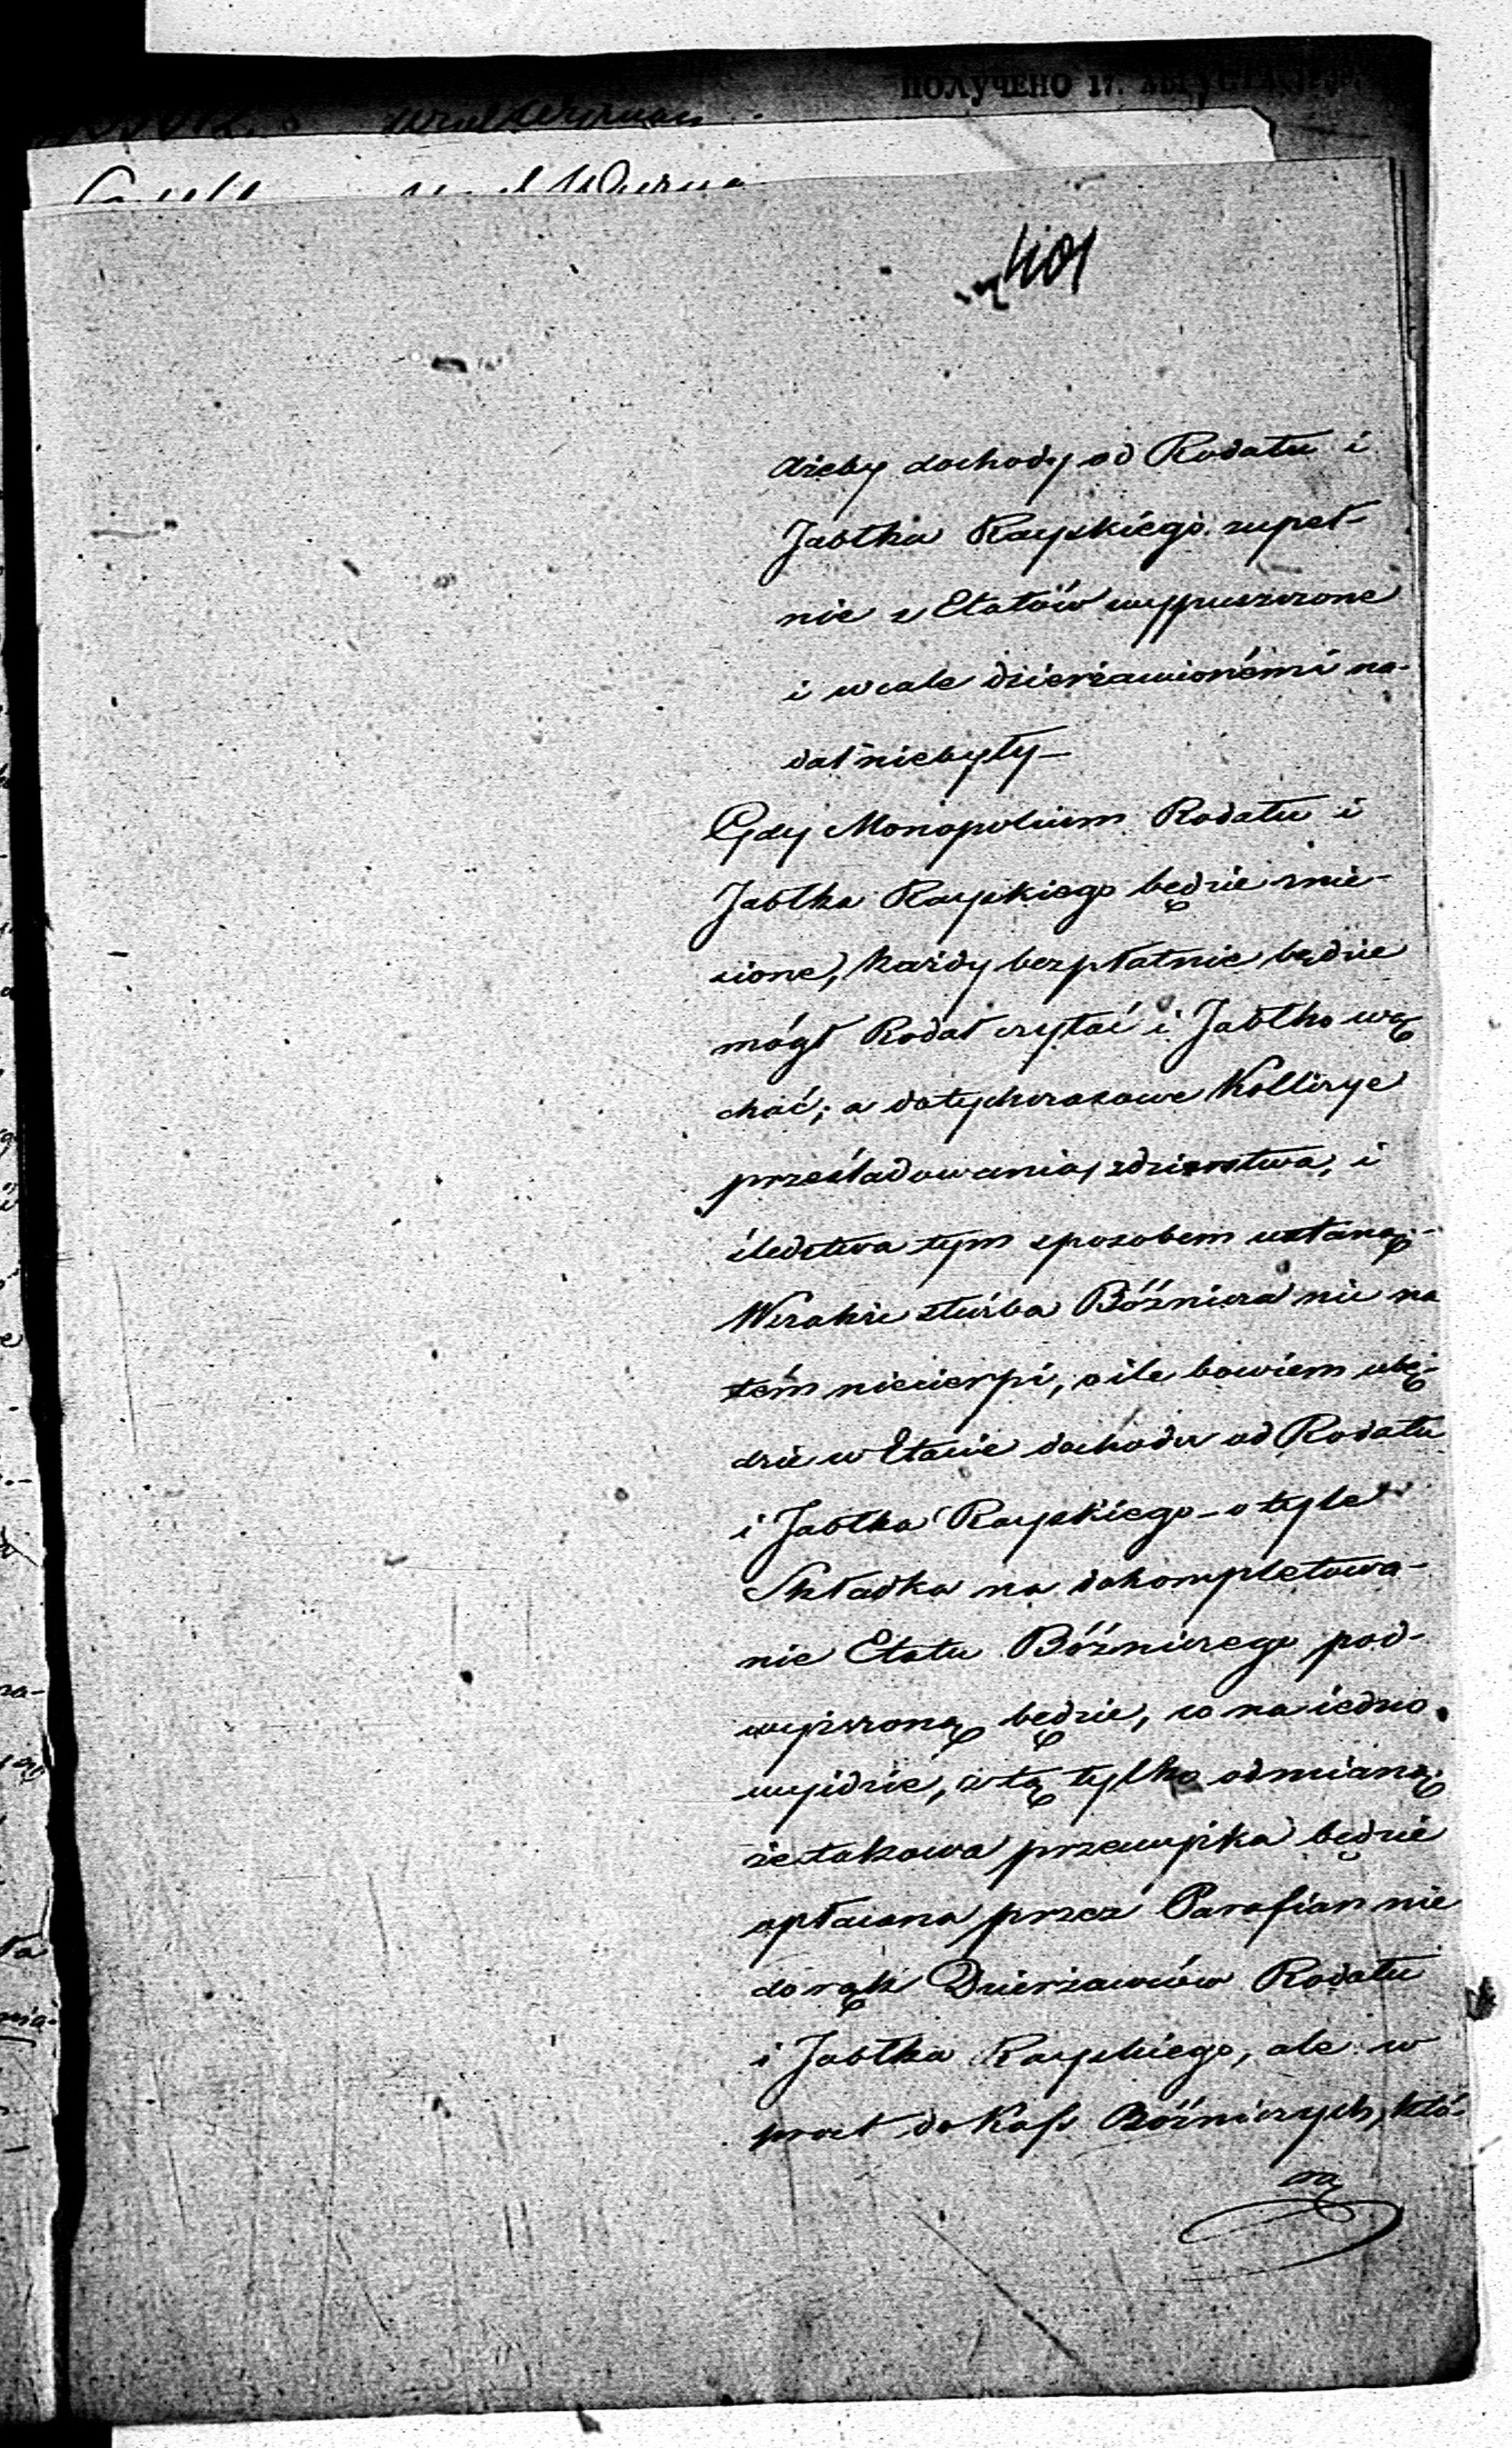 ПОЛУЧЕНО 17. АВГУСТА
401
ażeby dochody od Rodału i
Jabłka Rayskiego zupeł-
nie z Etatów wypuszczone
i wcale dzierżawionémi na-
dal niebyły —
Gdy Monopolium Rodału i
Jabłka Rayskiego będzie znie-
sione, każdy bezpłatnie będzie
mógł Rodał czytać i Jabłko wą
chać; a dotychczasowe Kollizye
prześladowania, zdzierstwa, i
śledztwa tym sposobem ustaną.-
Wszakże służba Bóżnicza nic na
tém niecierpi, o ile bowiem ubę-
dzie w Etacie dochodu od Rodału
i Jabłka Rayskiego – o tyle
Składka na dokompletowa-
nie Etatu Bóżniczego pod-
wyższoną będzie, co na iedno
wyjdzie, z tą tylko odmianą
że takowa przewyżka będzie
opłacana przez Parafian nie
do rąk Dzierżawców Rodału
i Jabłka Rayskiego, ale w
prost do Kass Bóżniczych, któ-
rą